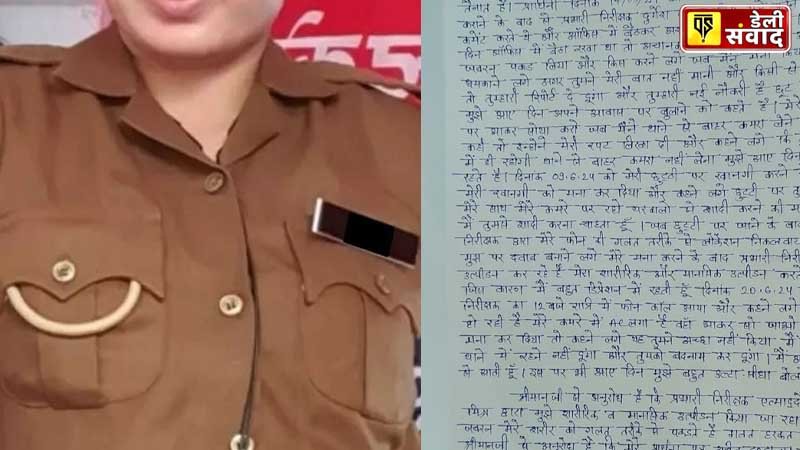 डेली
संवाद
कराने के बाद से प्रभारी निरीक्षक
कमेंट करने में और ऑफिस में बैठाकर
दिन ऑफिस में बैठा रखा था तो अचानक
जबरन पकड़ लिया और किस करने लगे जब मैंने मना किया
धमकाने लगे अगर तुमने मेरी बात नहीं मानी और किसी से
तो तुम्हारी रिपोर्ट दे दूंगा और तुम्हारी नई नौकरी है छूट
मुझे आए दिन अपने आवास पर बुलाने को कहते हैं। मेरे
पर आकर सोया करो जब मैंने थाने से बाहर कमरा लेने
कहा तो उन्होंने मेरी रपट लिखा दी और कहने लगे कि
में ही रहोगी थाने से बाहर कमरा नहीं लेना मुझे आए दिन
रहते हैं। दिनांक 09.6.24 को मेरी छुट्टी पर रवानगी करने
मेरी रवानगी को मना कर दिया और कहने लगे छुट्टी पर
मेरे साथ मेरे कमरे पर रहो घरवालो से शादी करने की
मैं तुमसे शादी करना चाहता हूँ। जब छुट्टी पर जाने के बाद
निरीक्षक द्वारा मेरे फोन की गलत तरीके से लोकेशन निकलवाकर
मुझ पर दवाब बनाने लगे मेरे मना करने के बाद प्रभारी
उत्पीडन कर रहे है मेरा शारीरिक और मानसिक उत्पीडन
जिस कारण मैं बहुत डिप्रेशन में रहती हूँ दिनांक 20.6.24
निरीक्षक का 12 बजे रात्रि में फोन कॉल आया और कहने लगे
हो रही है मेरे कमरे में AC लगा है वहाँ आकर सो जाओ
मना कर दिया तो कहने लगे यह तुमने अच्छा नहीं किया मैं
थाने में रहने नहीं दूंगा और तुमको बदनाम कर दूंगा।
से आती हूँ। इस पर भी आए दिन मुझे बहुत उल्टा सीधा
श्रीमानजी से अनुरोध है कि प्रभारी निरीक्षक
मिश्र द्वारा मुझे शारीरिक व मानसिक उत्पीडन किया जा रहा
जबरन मेरे शरीर को गलत तरीके से पकडते है गलत हरकत
श्रीमानजी से अनुरोध है कि मेरे